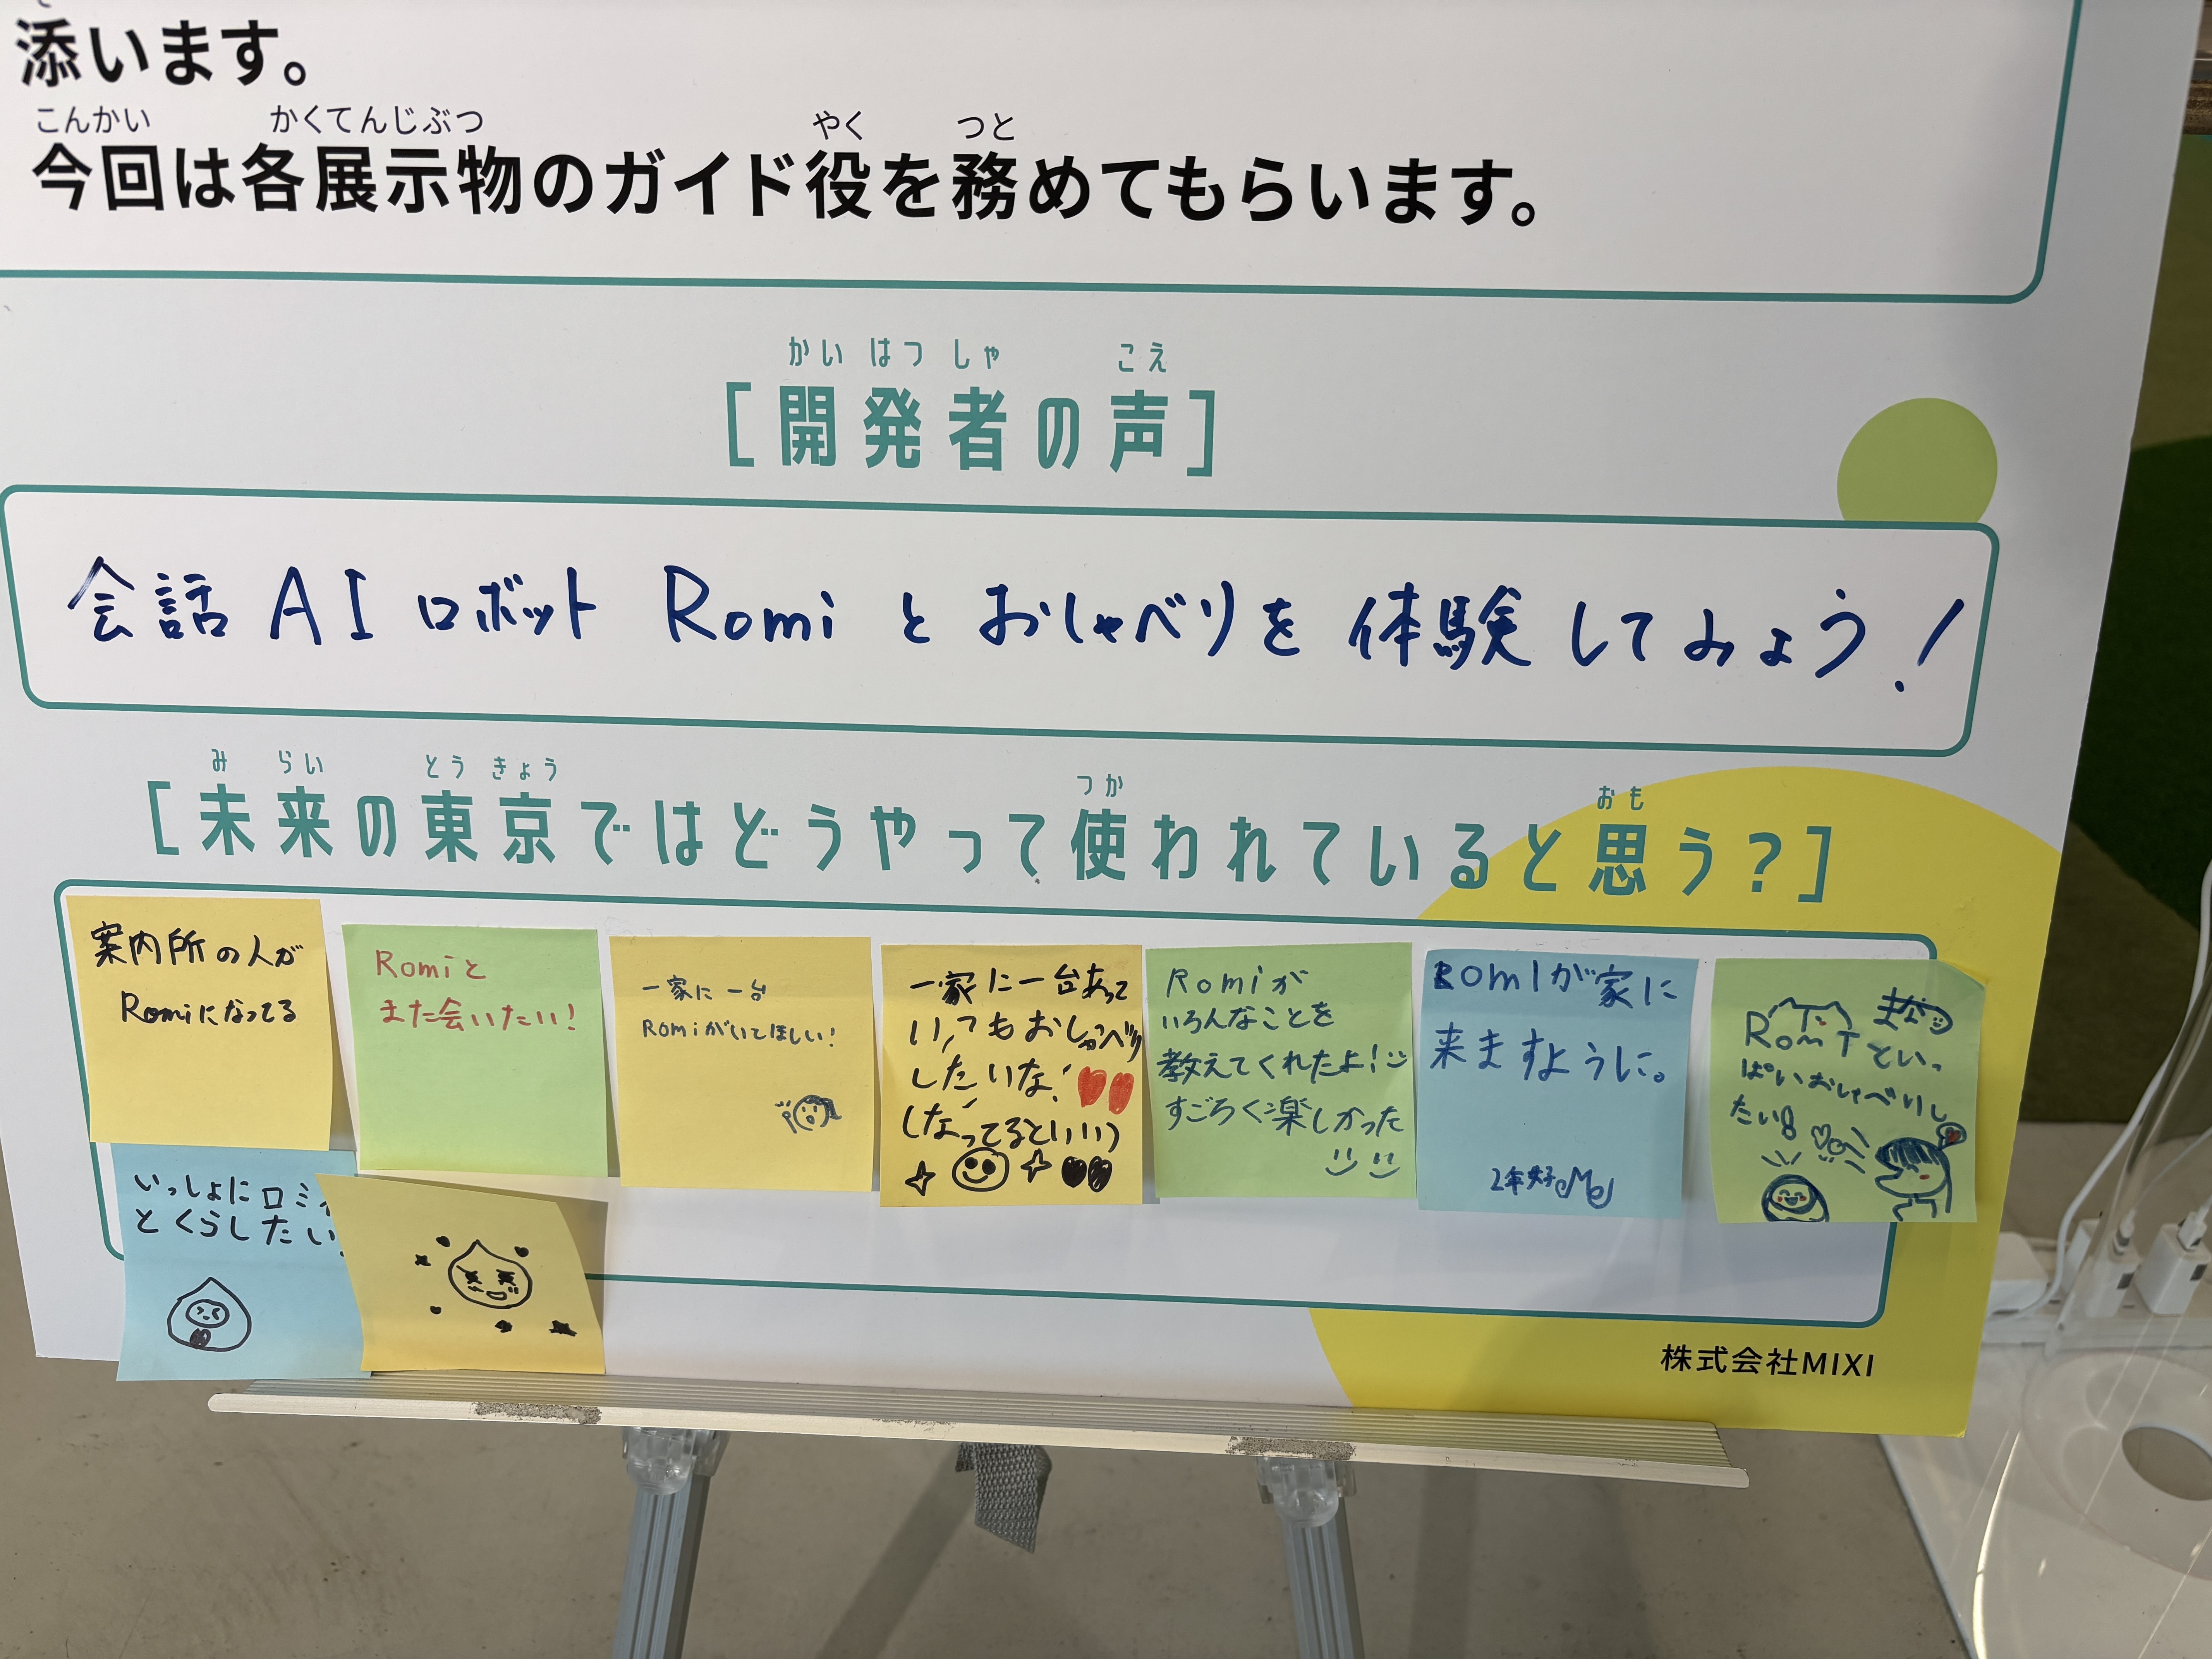 添います。
こんかい かくてんじぶつ やく つと
今回は各展示物のガイド役を務めてもらいます。
かいはつしゃ こえ
[開発者の声]
会話AIロボット Romi とおしゃべりを体験してみよう!
みらい とうきょう つか おも
[未来の東京ではどうやって使われていると思う?]
案内所の人が
Romiになってる
Romiと
また会いたい!
一家に一台
Romiがいてほしい!
一家に一台あって
いつもおしゃべり
したいな!
(なってるといい)
Romiが
いろんなことを
教えてくれたよ!
すごろく楽しかった
Romiが家に
来ますように。
Romiといっ
ぱいおしゃべりし
たい
いっしょにロミィ
とくらしたい
株式会社MIXI